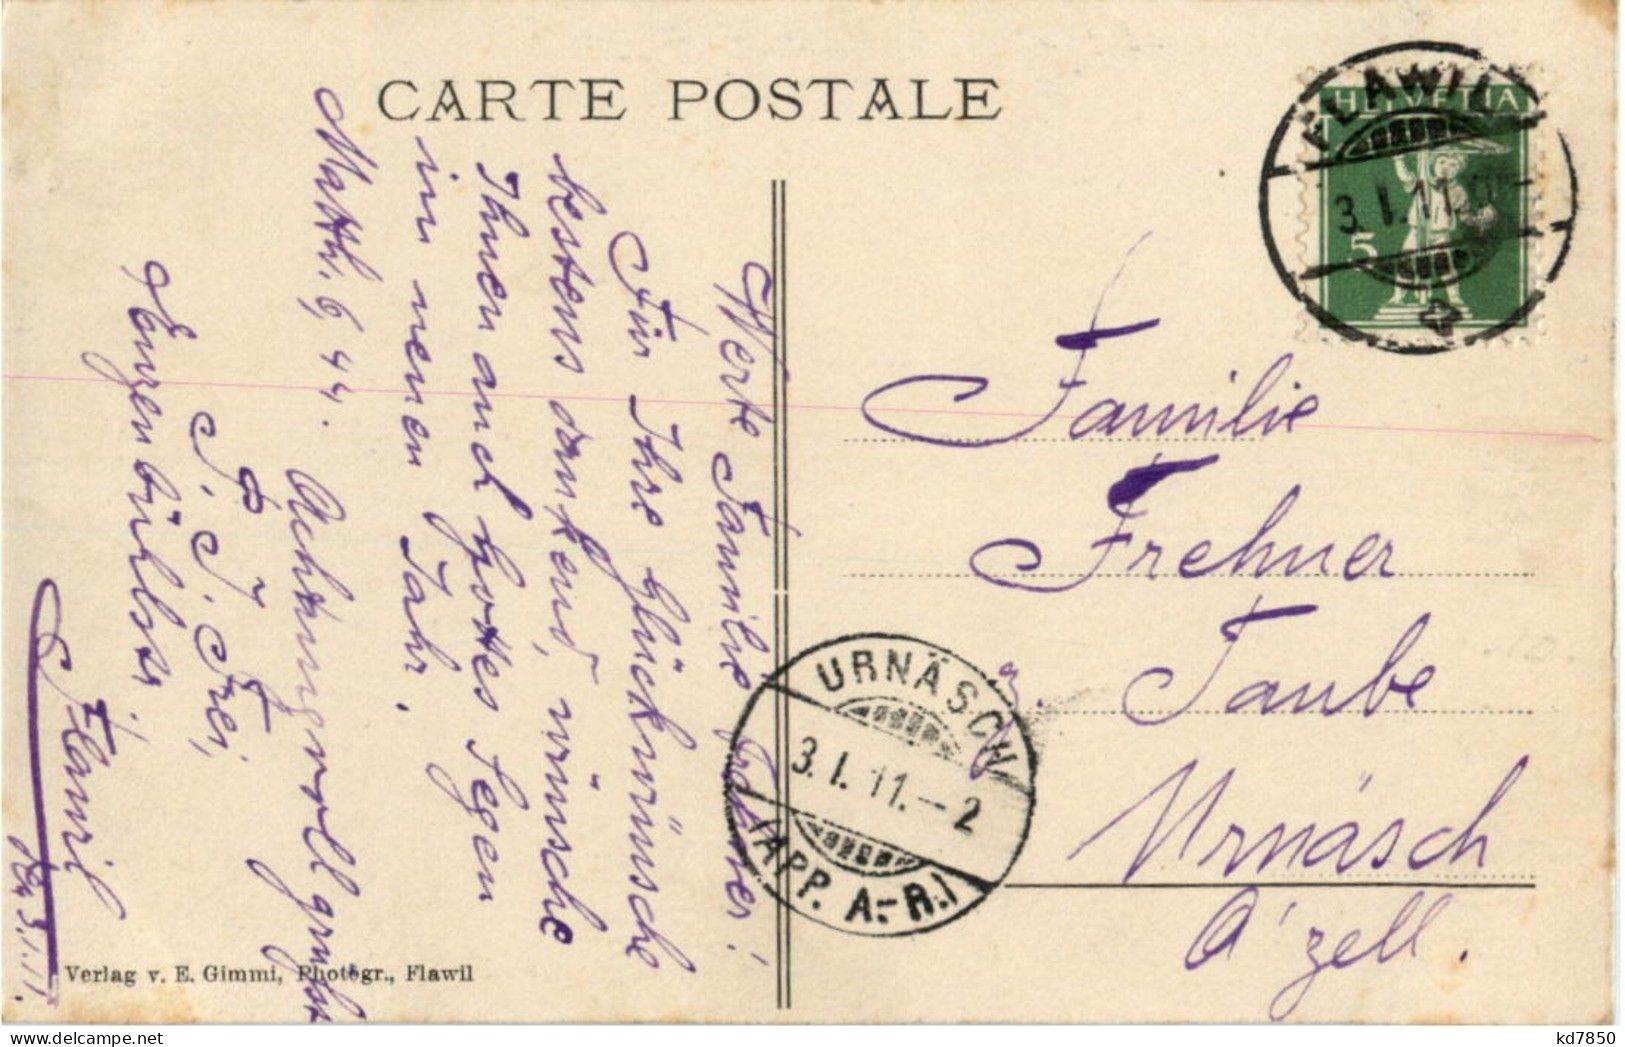 CARTE POSTALE
HELVETIA
5
FLAWIL
3.I.11.
Werte Familie
Für Ihre Glückwünsche
bestens dankend, wünsche
Ihnen auch Gottes Segen
im neuen Jahr.
Matth. 6 44.
Achtungsvoll grüsst
J. J. Frei,
Flawil
3.I.11.
URNÄSCH
3.I.11.–2
(APP. A.-R.)
Familie
Frehner
Taube
Urnäsch
A'zell.
Verlag v. E. Gimmi, Photogr., Flawil
kd7850